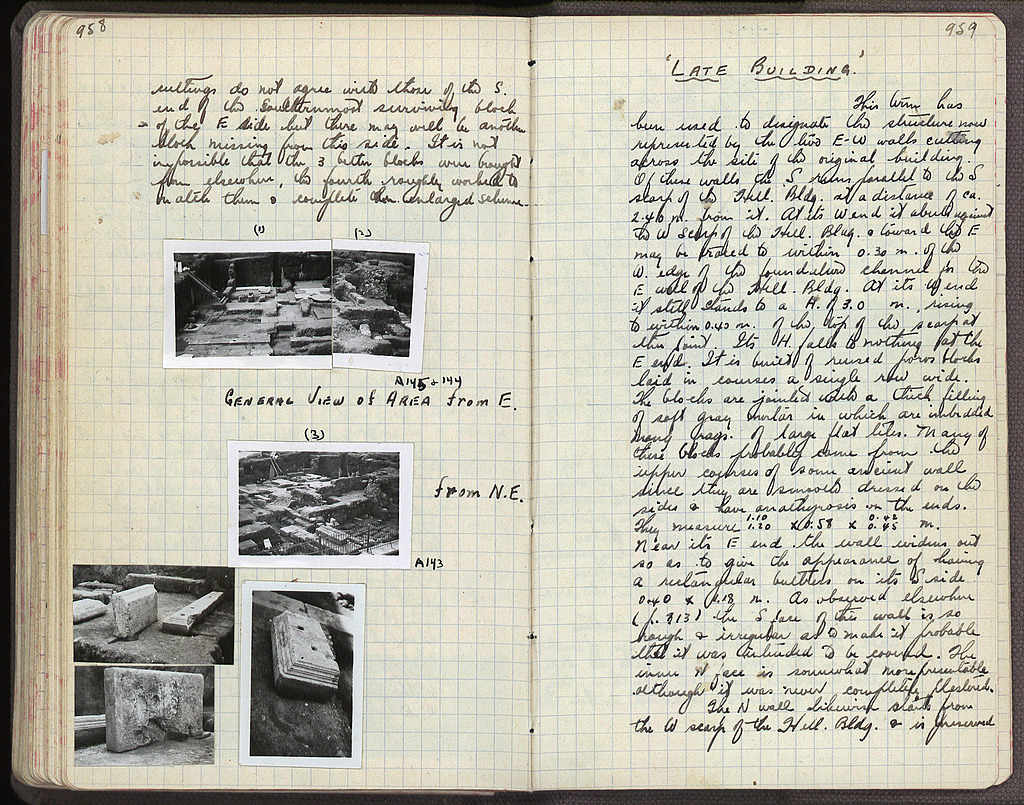 958
cuttings do not agree with those of the S.
end of the Southernmost surviving block
of the E side but there may well be another
block missing from this side. It is not
impossible that the 3 better blocks were brought
from elsewhere, the fourth roughly worked to
match them & complete the enlarged scheme.
(1) (2)
A145 & 144
GENERAL VIEW of AREA from E.
(3)
from N.E.
A143
959
'LATE BUILDING.'
This term has
been used to designate the structure now
represented by the two E-W walls cutting
across the site of the original building.
Of these walls the S runs parallel to the S
scarp of the Hell. Bldg. at a distance of ca.
2.40 m. from it. At its W end it abuts against
the W scarp of the Hell. Bldg. & toward the E
may be traced to within 0.30 m. of the
W. edge of the foundation channel for the
E wall of the Hell. Bldg. At its W end
it still stands to a H. of 3.0 m., rising
to within 0.40 m. of the top of the scarp at
this point. Its H. falls to nothing at the
E end. It is built of reused poros blocks
laid in courses a single row wide.
The blocks are jointed with a thick filling
of soft gray mortar in which are imbedded
many frags. of large flat tiles. Many of
these blocks probably come from the
upper courses of some ancient wall
since they are smooth dressed on the
sides & have anathyrosis on the ends.
They measure 1.10 1.20 x 0.58 x 0.42 0.45 m.
Near its E end the wall widens out
so as to give the appearance of having
a rectangular buttress on its S side
0.40 x 1.18 m. As observed elsewhere
(p. 313) the S face of this wall is so
rough & irregular as to make it probable
that it was intended to be covered. The
inner N face is somewhat more presentable
although it was never completely plastered.
The N wall likewise starts from
the W scarp of the Hell. Bldg. & is preserved